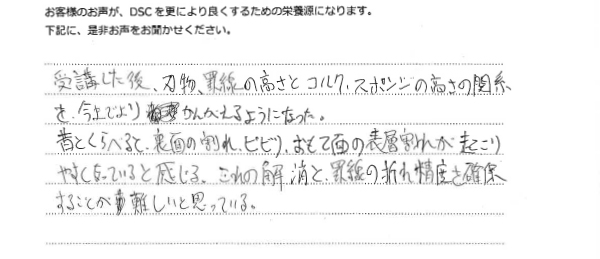 お客様のお声が、DSCを更により良くするための栄養源になります。
下記に、是非お声をお聞かせください。
受講した後、刃物、罫線の高さとコルク、スポンジの高さの関係
を、今までより かんがえるようになった。
昔とくらべると、裏面の割れ、ビビリ、おもて面の表層割れが起こり
やすくなっていると感じる。これの解消と、罫線の折れ精度を確保
することが難しいと思っている。